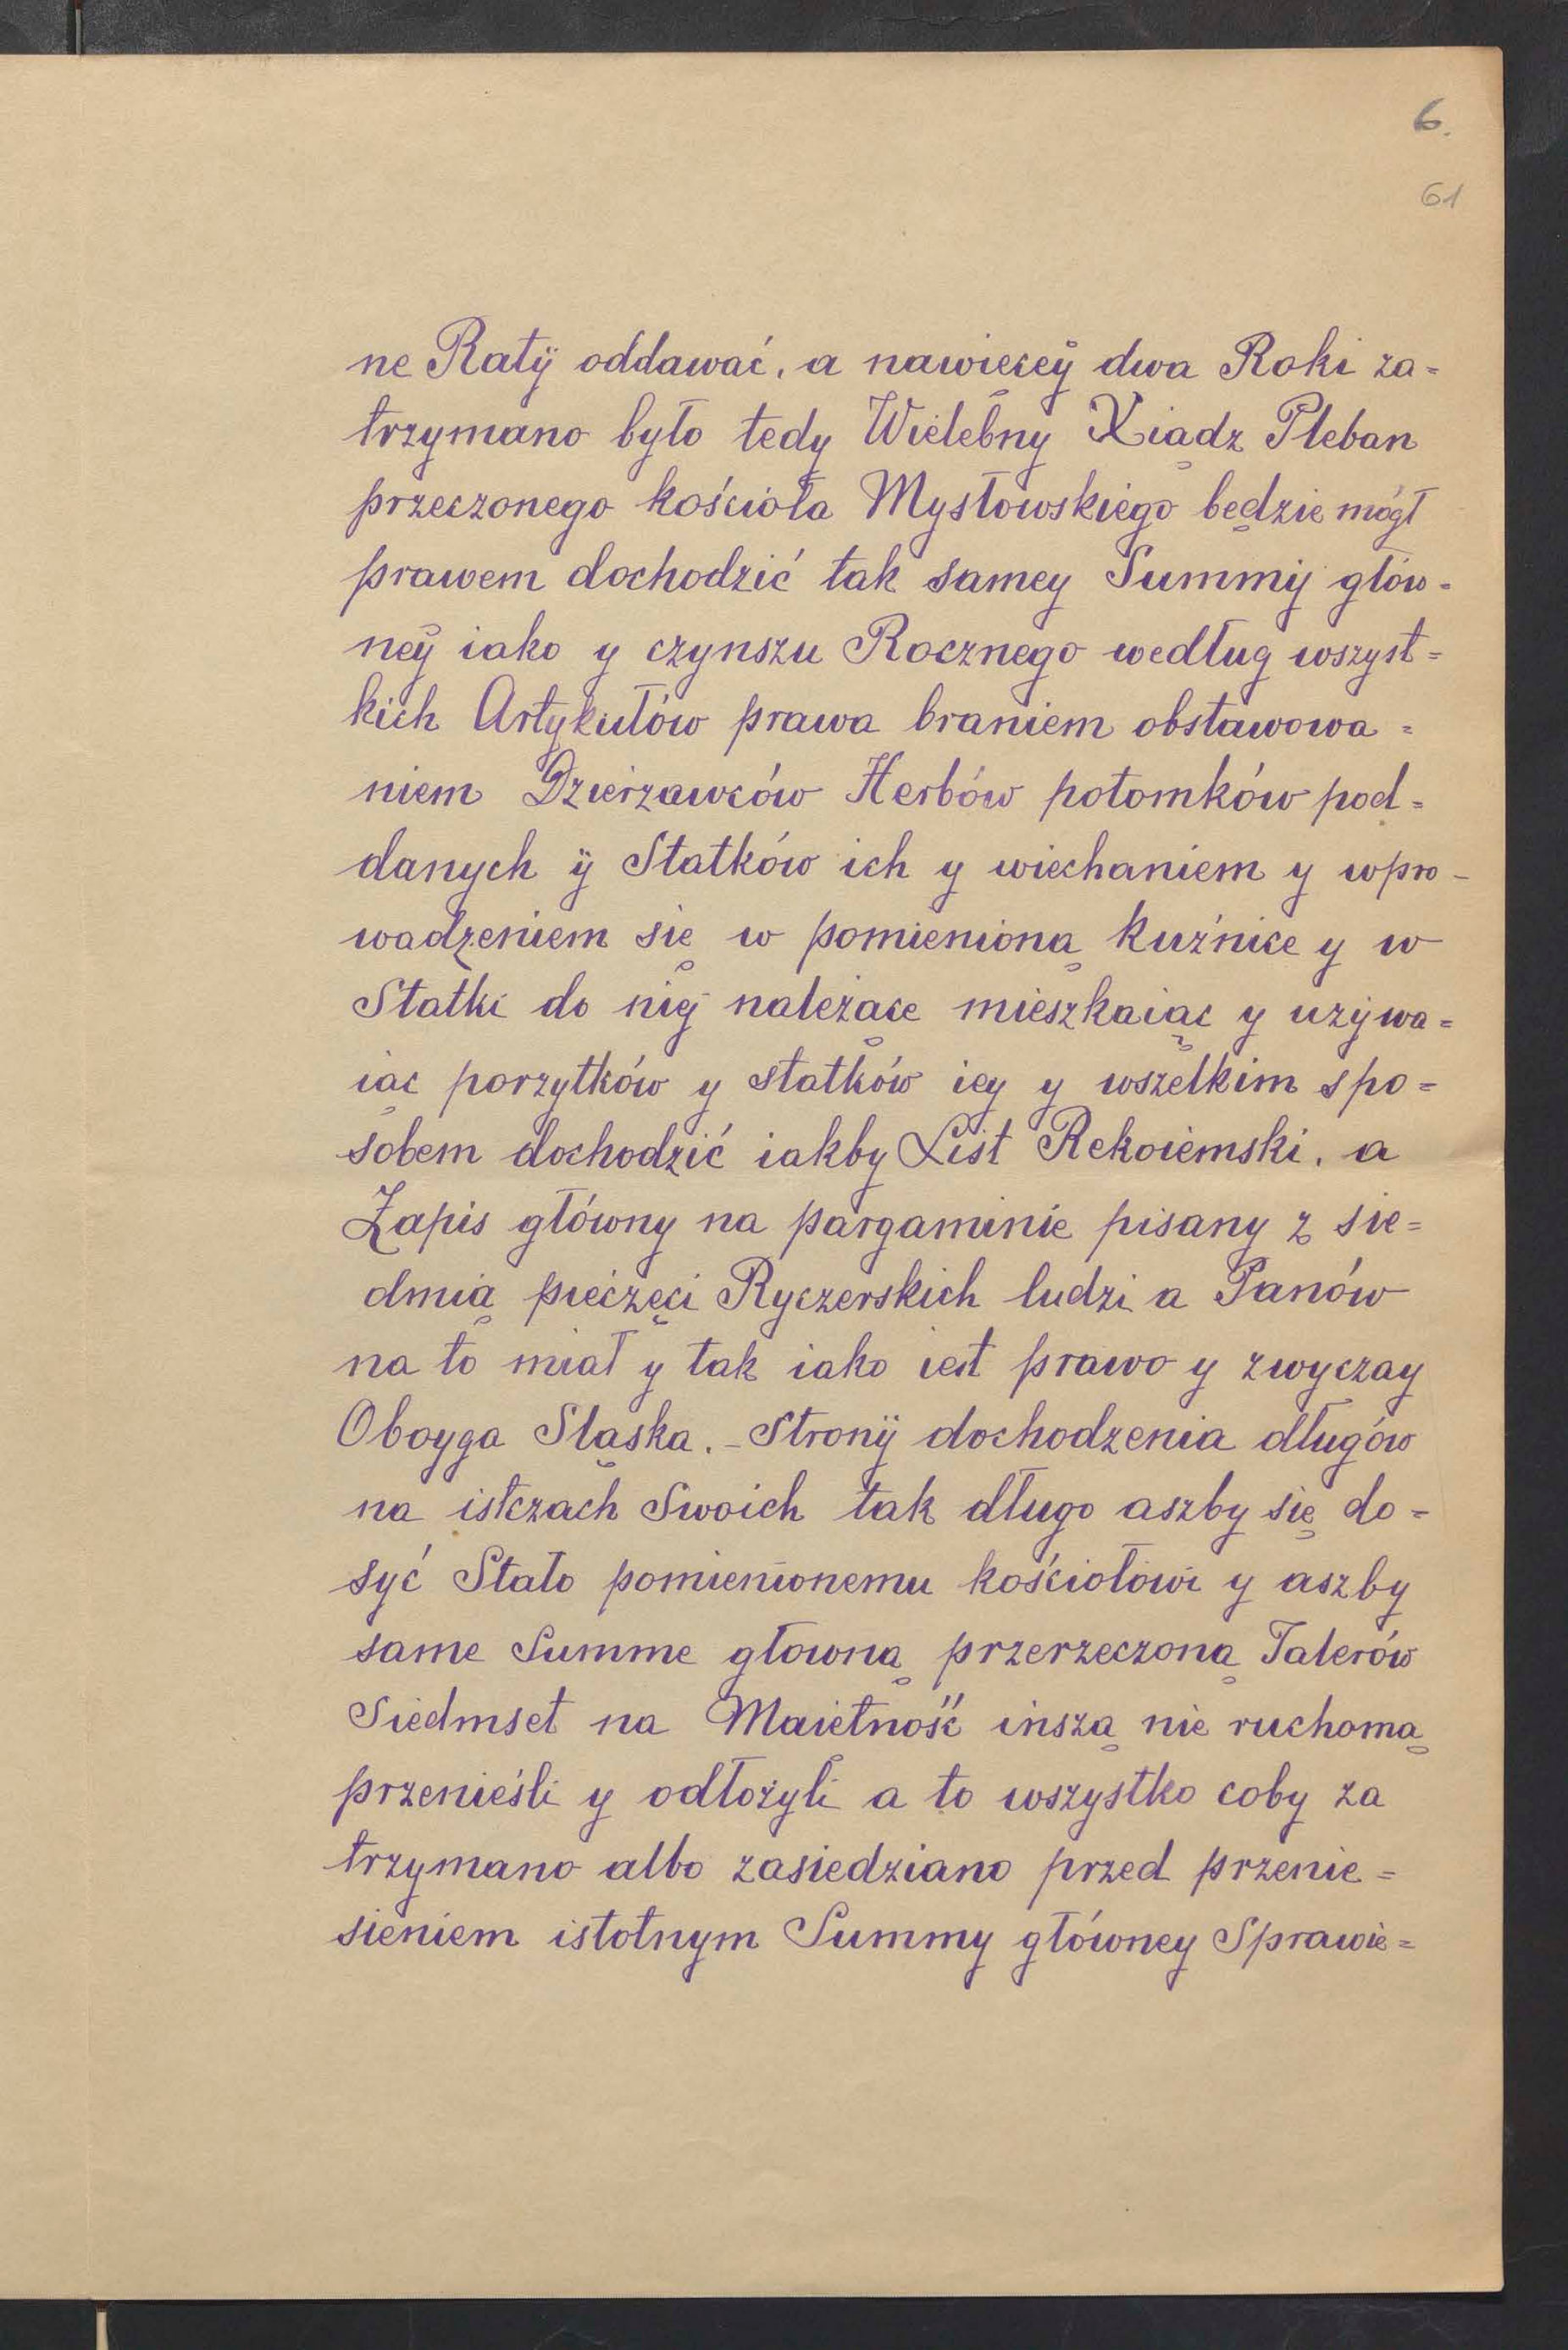 6.
61
ne Ratÿ oddawać, a nawięceÿ dwa Roki za=
trzymano było tedy Wielebny Xiądz Pleban
przeczonego kościoła Mysłowskiego będzie mógł
prawem dochodzić tak samey Summÿ głów=
neÿ iako y czynszu Rocznego według wszyst=
kich Artykułów prawa braniem obstawowa=
niem Dzierzawców Herbów potomków pod=
danych ÿ Statków ich y wiechaniem y wpro-
wadzeniem się w pomienioną kuźnice y w
Statki do niej należące mieszkaiąc y uzÿwa=
iąc porzytków y statków iey y wszelkim spo=
sobem dochodzić iakby List Rekoiemski, a
Zapis główny na pargaminie pisany z sie=
dmią pieczęci Ryczerskich ludzi a Panów
na to miał y tak iako iest prawo y zwyczay
Oboyga Sląska. - Stronÿ dochodzenia długów
na istczach Swoich tak długo aszby się do=
syć Stało pomienionemu kościołowi y aszby
same Summe głowną przerzeczoną Talerów
Siedmset na Maietność inszą nie ruchomą
przenieśli y odłożyli a to wszystko coby za
trzymano albo zasiedziano przed przenie=
sieniem istotnym Summy główney Sprawie=